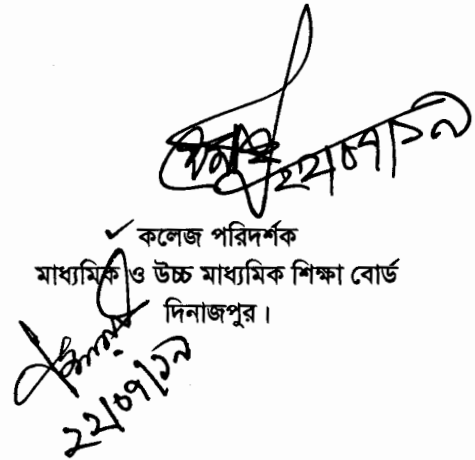 ২২/০৭/১৯
কলেজ পরিদর্শক
মাধ্যমিক ও উচ্চ মাধ্যমিক শিক্ষা বোর্ড
দিনাজপুর।
২২/০৭/১৯